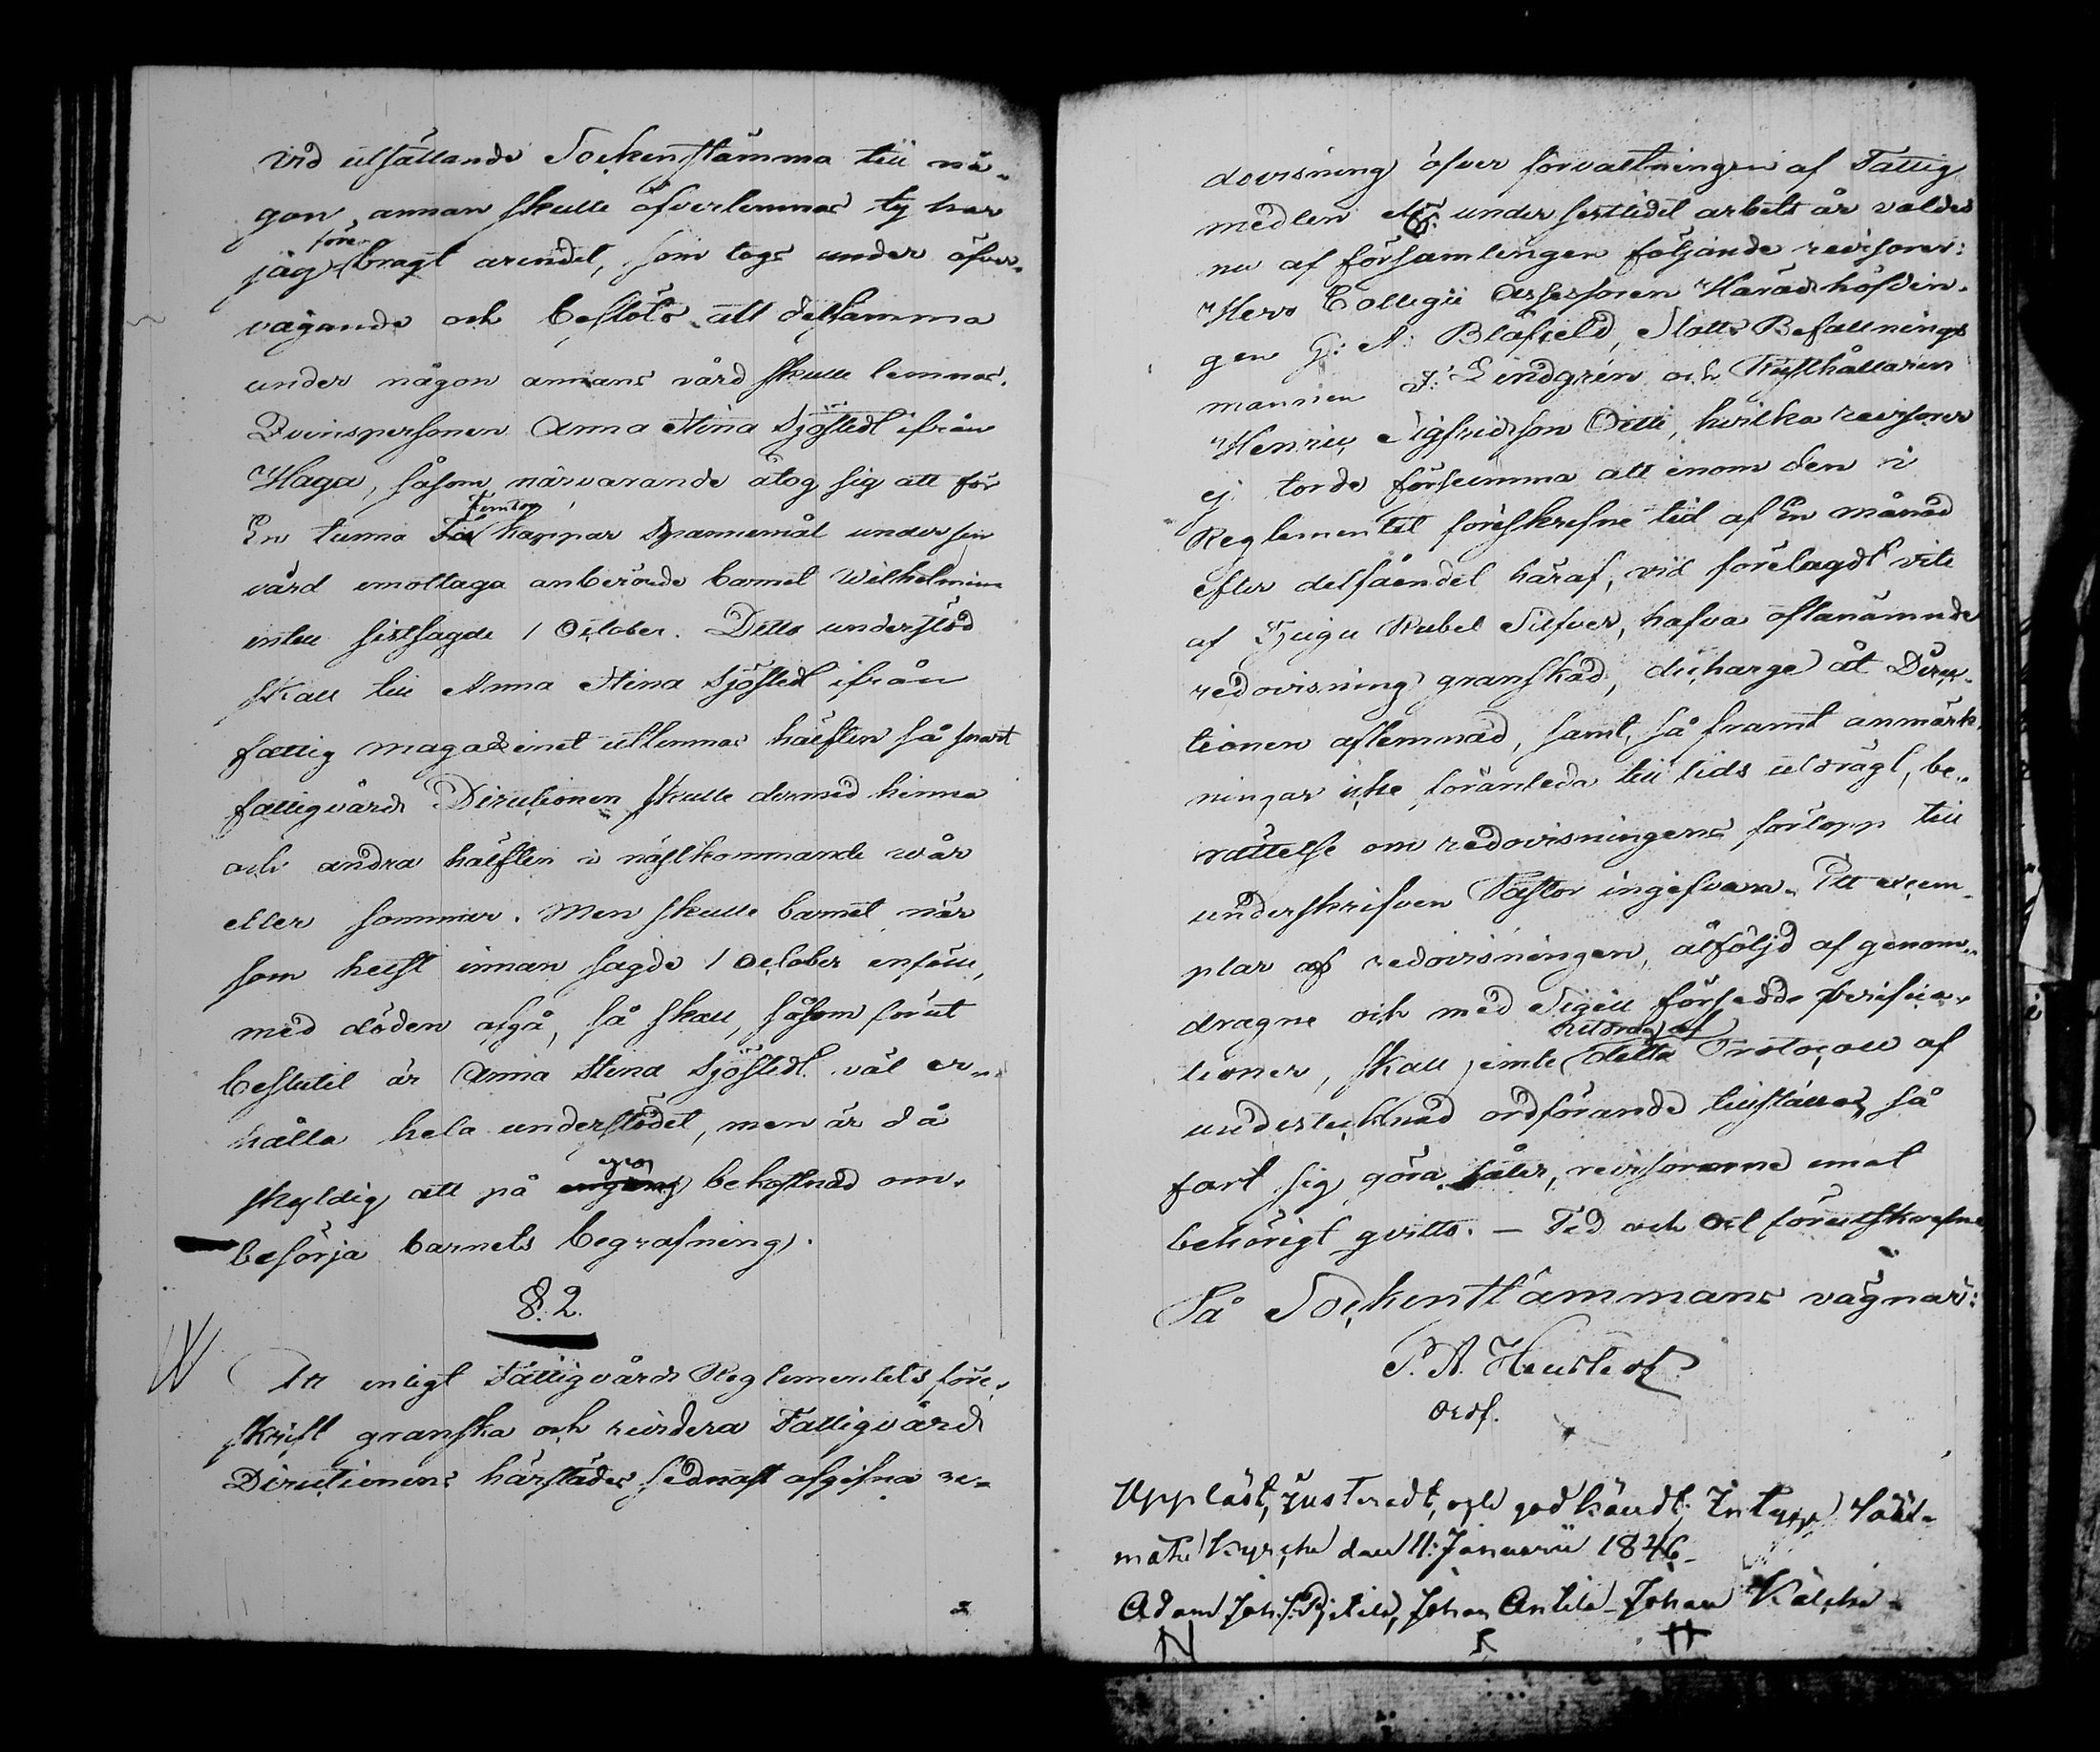 vid utsättande Sockenstämma till nå-
gon annan skulle öfverlemnas ty har
jag förebragt ärendet, som togs under öfver-
vägande och beslöts att detsamma
under någon annans vård skulle lemnas.
Qvinspersonen Anna Stina Sjöstedt ifrån
Haga, såsom närvarande åtog sig att för
En tunna Femton kappar Spannemål under sin
vård emottaga anberörde barnet Wilhelmina
intill sistsagde 1 October. Detta understöd
skall till Anna Stina Sjöstedt ifrån
fattig magazinet utlemnas hälften så snart
fattigvårds Directionen skulle dermed hinna
och andra hälften i nästkommande vår
eller sommar. Men skulle barnet när
som helst innan sagde 1 October infall,
med döden afgå, så skall, såsom förut
beslutit är Anna Stina Sjöstedt väl er-
hålla hela understödet, men är då
skyldig att på egen bekostnad om-
besörja barnets begrafning.
§.2.
Att enligt Fattigvårds Reglementets före-
skrift granska och revidera Fattigvårds
Directionens härstädes sednast afgifna re-
dovisning öfver förvaltningen af Fattig
medlen under sistledit arbets år valdes
nu af församlingen följande revisorer:
Herr Collegii Assessoren Häradshöfdin-
gen G: A: Blåfield, Slotts Befallnings
mannen J: Lindgrén och Rusthållaren
Henric Sigfridsson Oitti, hvilka revisorer
ej torde försumma att inom den i
Reglementet föreskrefne tid af En månad
efter delfåendet häraf, vid förelagdt vite
af Tjugu Rubel Silfver, hafva oftanämnde
redovisning granskad, decharge åt Direc-
tionen aflemnad, samt, så framt anmärk-
ningar icke föranleda till tids utdrägt, be-
rättelse om redovisningens förlopp till
underskrifven Pastor ingifvan. Ett exem-
plar af redovisningen, åtföljd af genom-
dragne och med Sigill försedde verifica-
tioner, skall jemte utdrag af detta Protocoll af
undertecknad ordförande tillställas så
fort sig göra låter, revisorerne emot
behörigt qvitto. — Tid och Ort förutskrefne
På Sockenstämmans vägnar:
Ordf.
Uppläst, justeradt, och godkändt, Intyga
kyrcka den 11: Januarii 1846
Adam Joh:s: Johan Antila Johan Kälcke
N H